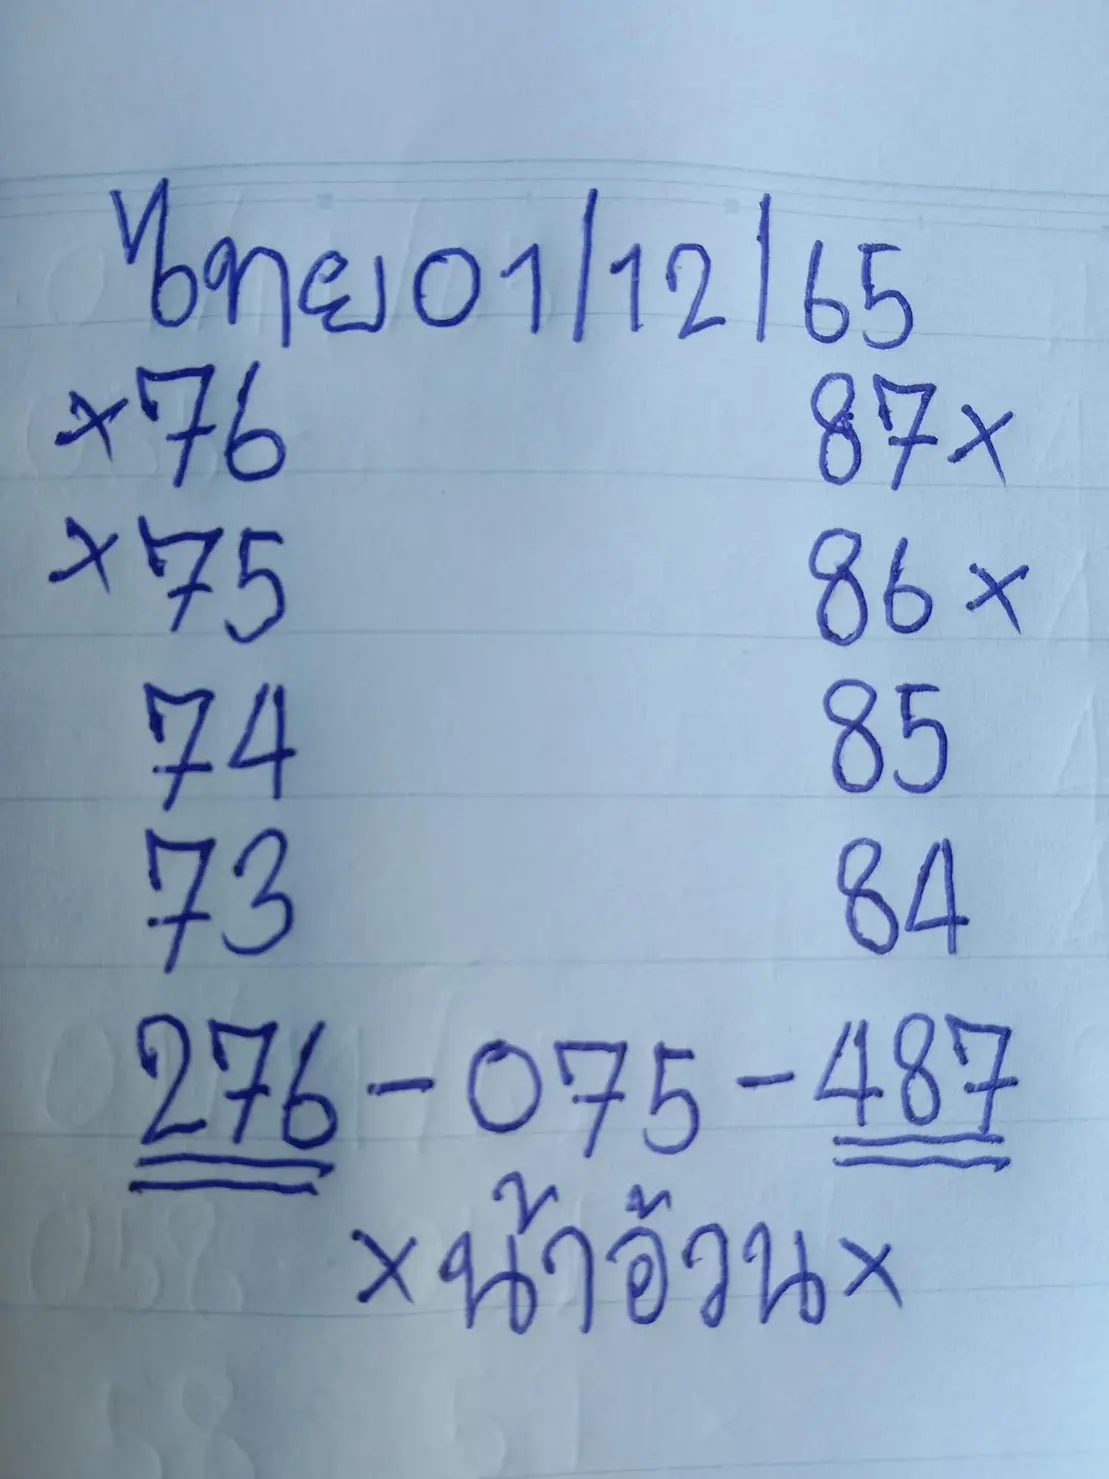 ไทย 01/12/65
×76 87×
×75 86×
74 85
73 84
276-075-487
×น้าอ้วน×